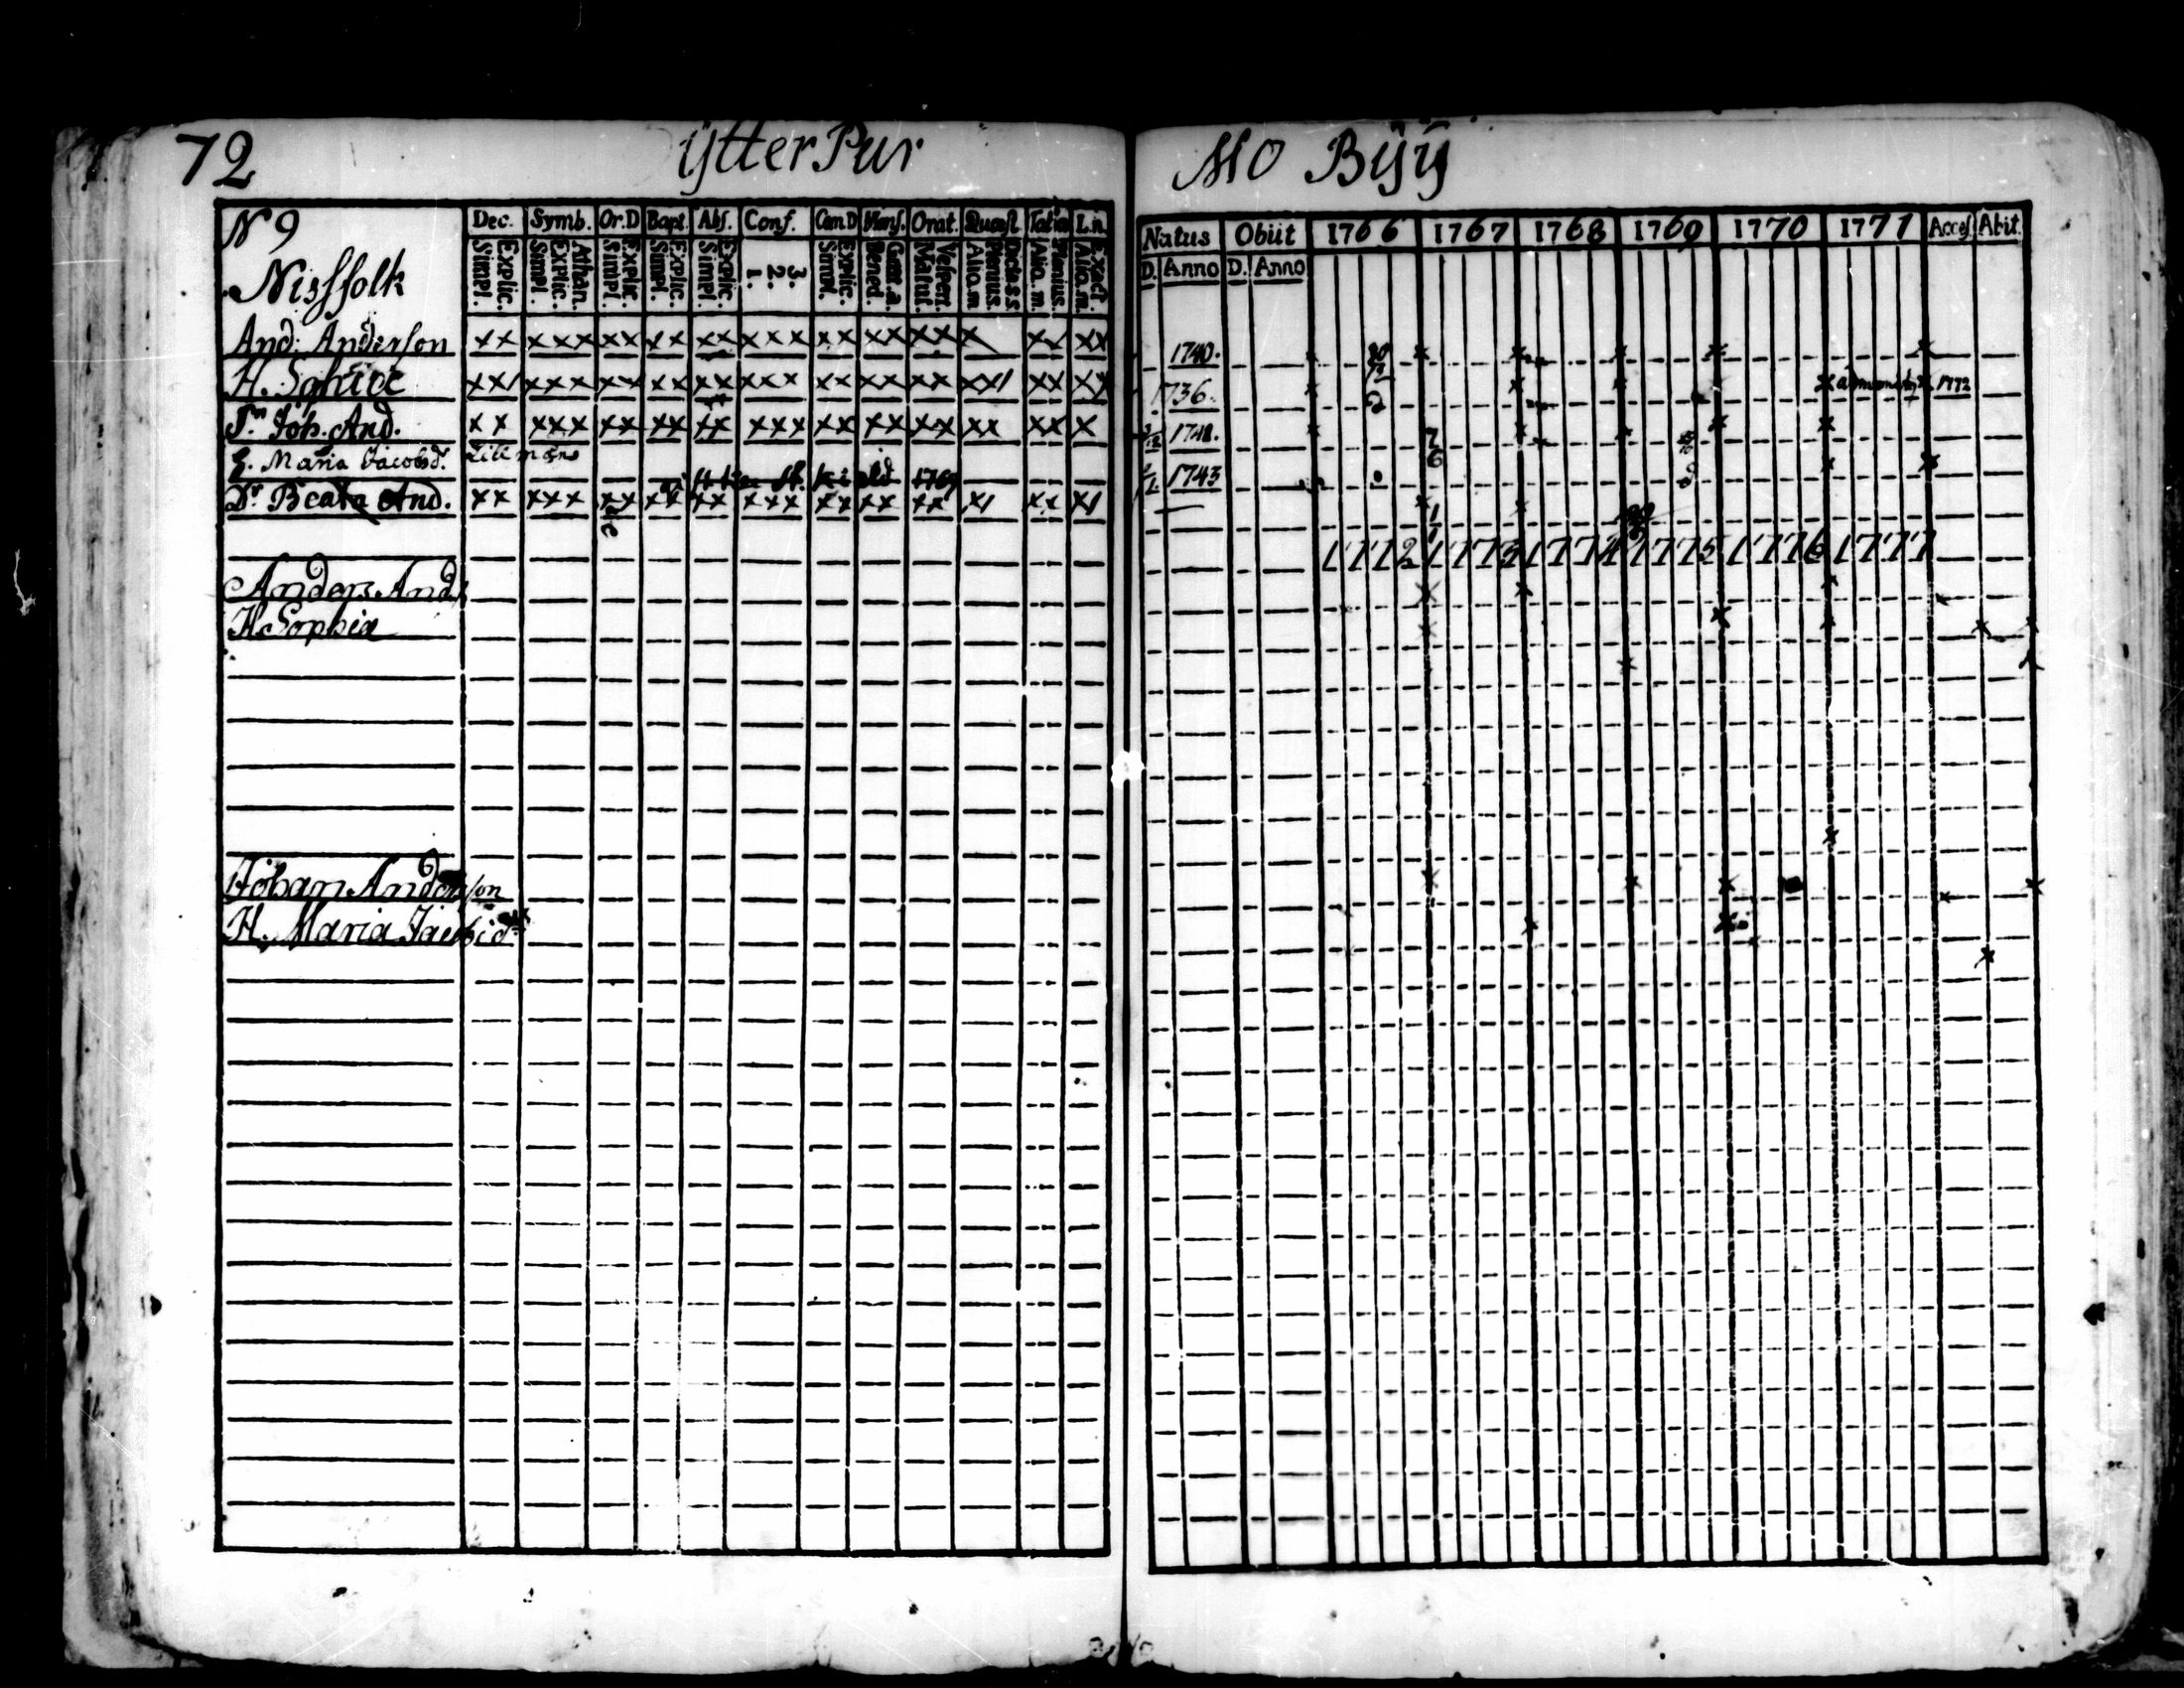 72 ÿtter Pur Mo Bÿÿ
N 9
Nissfolk
Dec. Symb. Or.D Bapt. Abs. Conf. Cœn.D Mens. Orat. Quæst L.n.
Explic. Simpl. Athan. Explic. Simpl. Explic. Simpl. Explic. Simpl. Explic. Simpl. 3. 2. 1. Explic. Simpl. Bened. Vesfert. Matut. Plenius. Alio.m Plenius. Alio.m. Exact. Alio.m.
Natus Obiit 1766 1767 1768 1769 1770 1771 Acces. Abit.
D. Anno D. Anno
And: Anderson x x x x x x x x x x x x x x x x x x x x x x x x x x 1740.
H. x x x x x x x x x x x x x x x x x x x x x x x x x x 1736. 1772
Joh. And. x x x x x x x x x x x x x x x x x x x x x x x x x
Maria Jacobsd. 1743
1769
Dr Beata And. x x x x x x x x x x x x x x x x x x x x x x x x
1772 1773 1774 1775 1776 1777
Anders And
H Sophia
Johan Anderson
H. Maria